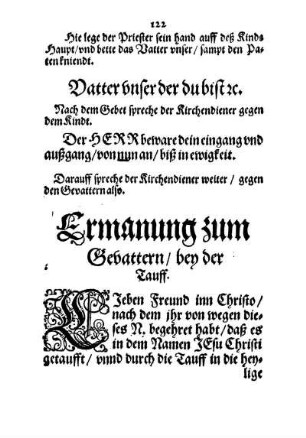 122
Hie lege der Priester sein hand auff deß Kinds
Haupt/ vnd bette das Vatter vnser/ sampt den Pa-
ten kniendt.
Vatter vnser der du bist ꝛc.
Nach dem Gebet spreche der Kirchendiener gegen
dem Kindt.
Der HERR beware dein eingang vnd
außgang/ von nun an/ biß in ewigkeit.
Darauff spreche der Kirchendiener weiter/ gegen
den Gevattern also.
Ermanung zum
Gevattern/ bey der
Tauff.
WJeben Freund inn Christo/
nach dem jhr von wegen die-
ses N. begehret habt/ daß es
in dem Namen JEsu Christi
getaufft/ vnnd durch die Tauff in die hey-
lige